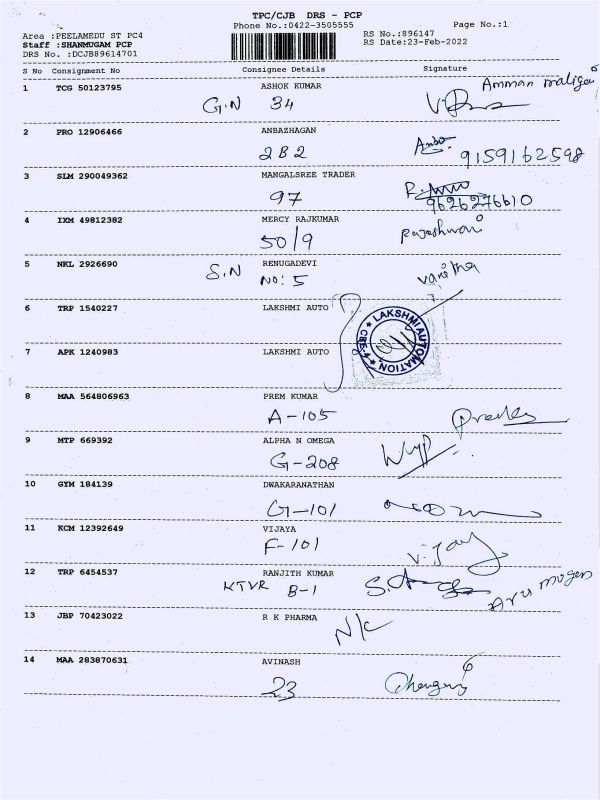 TPC/CJB DRS - PCP
Phone No.:0422-3505555
Page No.:1
Area :PEELAMEDU ST PC4
Staff :SHANMUGAM PCP
DRS No. :DCJB89614701
RS No.:896147
RS Date:23-Feb-2022
S No Consignment No Consignee Details Signature
1 TCG 50123795 ASHOK KUMAR
G.N 34
2 PRO 12906466 ANBAZHAGAN
2B2 9159162598
3 SLM 290049362 MANGALSREE TRADER
97 9626276610
4 IXM 49812382 MERCY RAJKUMAR
50/9 Rajeshwari
5 NKL 2926690 RENUGADEVI
S.N NO: 5 vanitha
6 TRP 1540227 LAKSHMI AUTO
LAKSHMI AUTOMATION
7 APK 1240983 LAKSHMI AUTO
8 MAA 564806963 PREM KUMAR
A-105
9 MTP 669392 ALPHA N OMEGA
G-208
10 GYM 184139 DWAKARANATHAN
G-101
11 KCM 12392649 VIJAYA
F-101 Vijay
12 TRP 6454537 RANJITH KUMAR
KTVR B-1
13 JBP 70423022 R K PHARMA
N/C
14 MAA 283870631 AVINASH
23